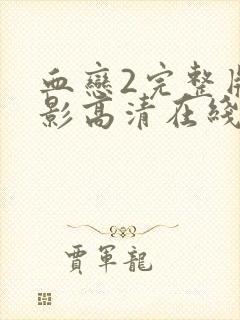 血戀2完整
影高清在綫
賈軍龍